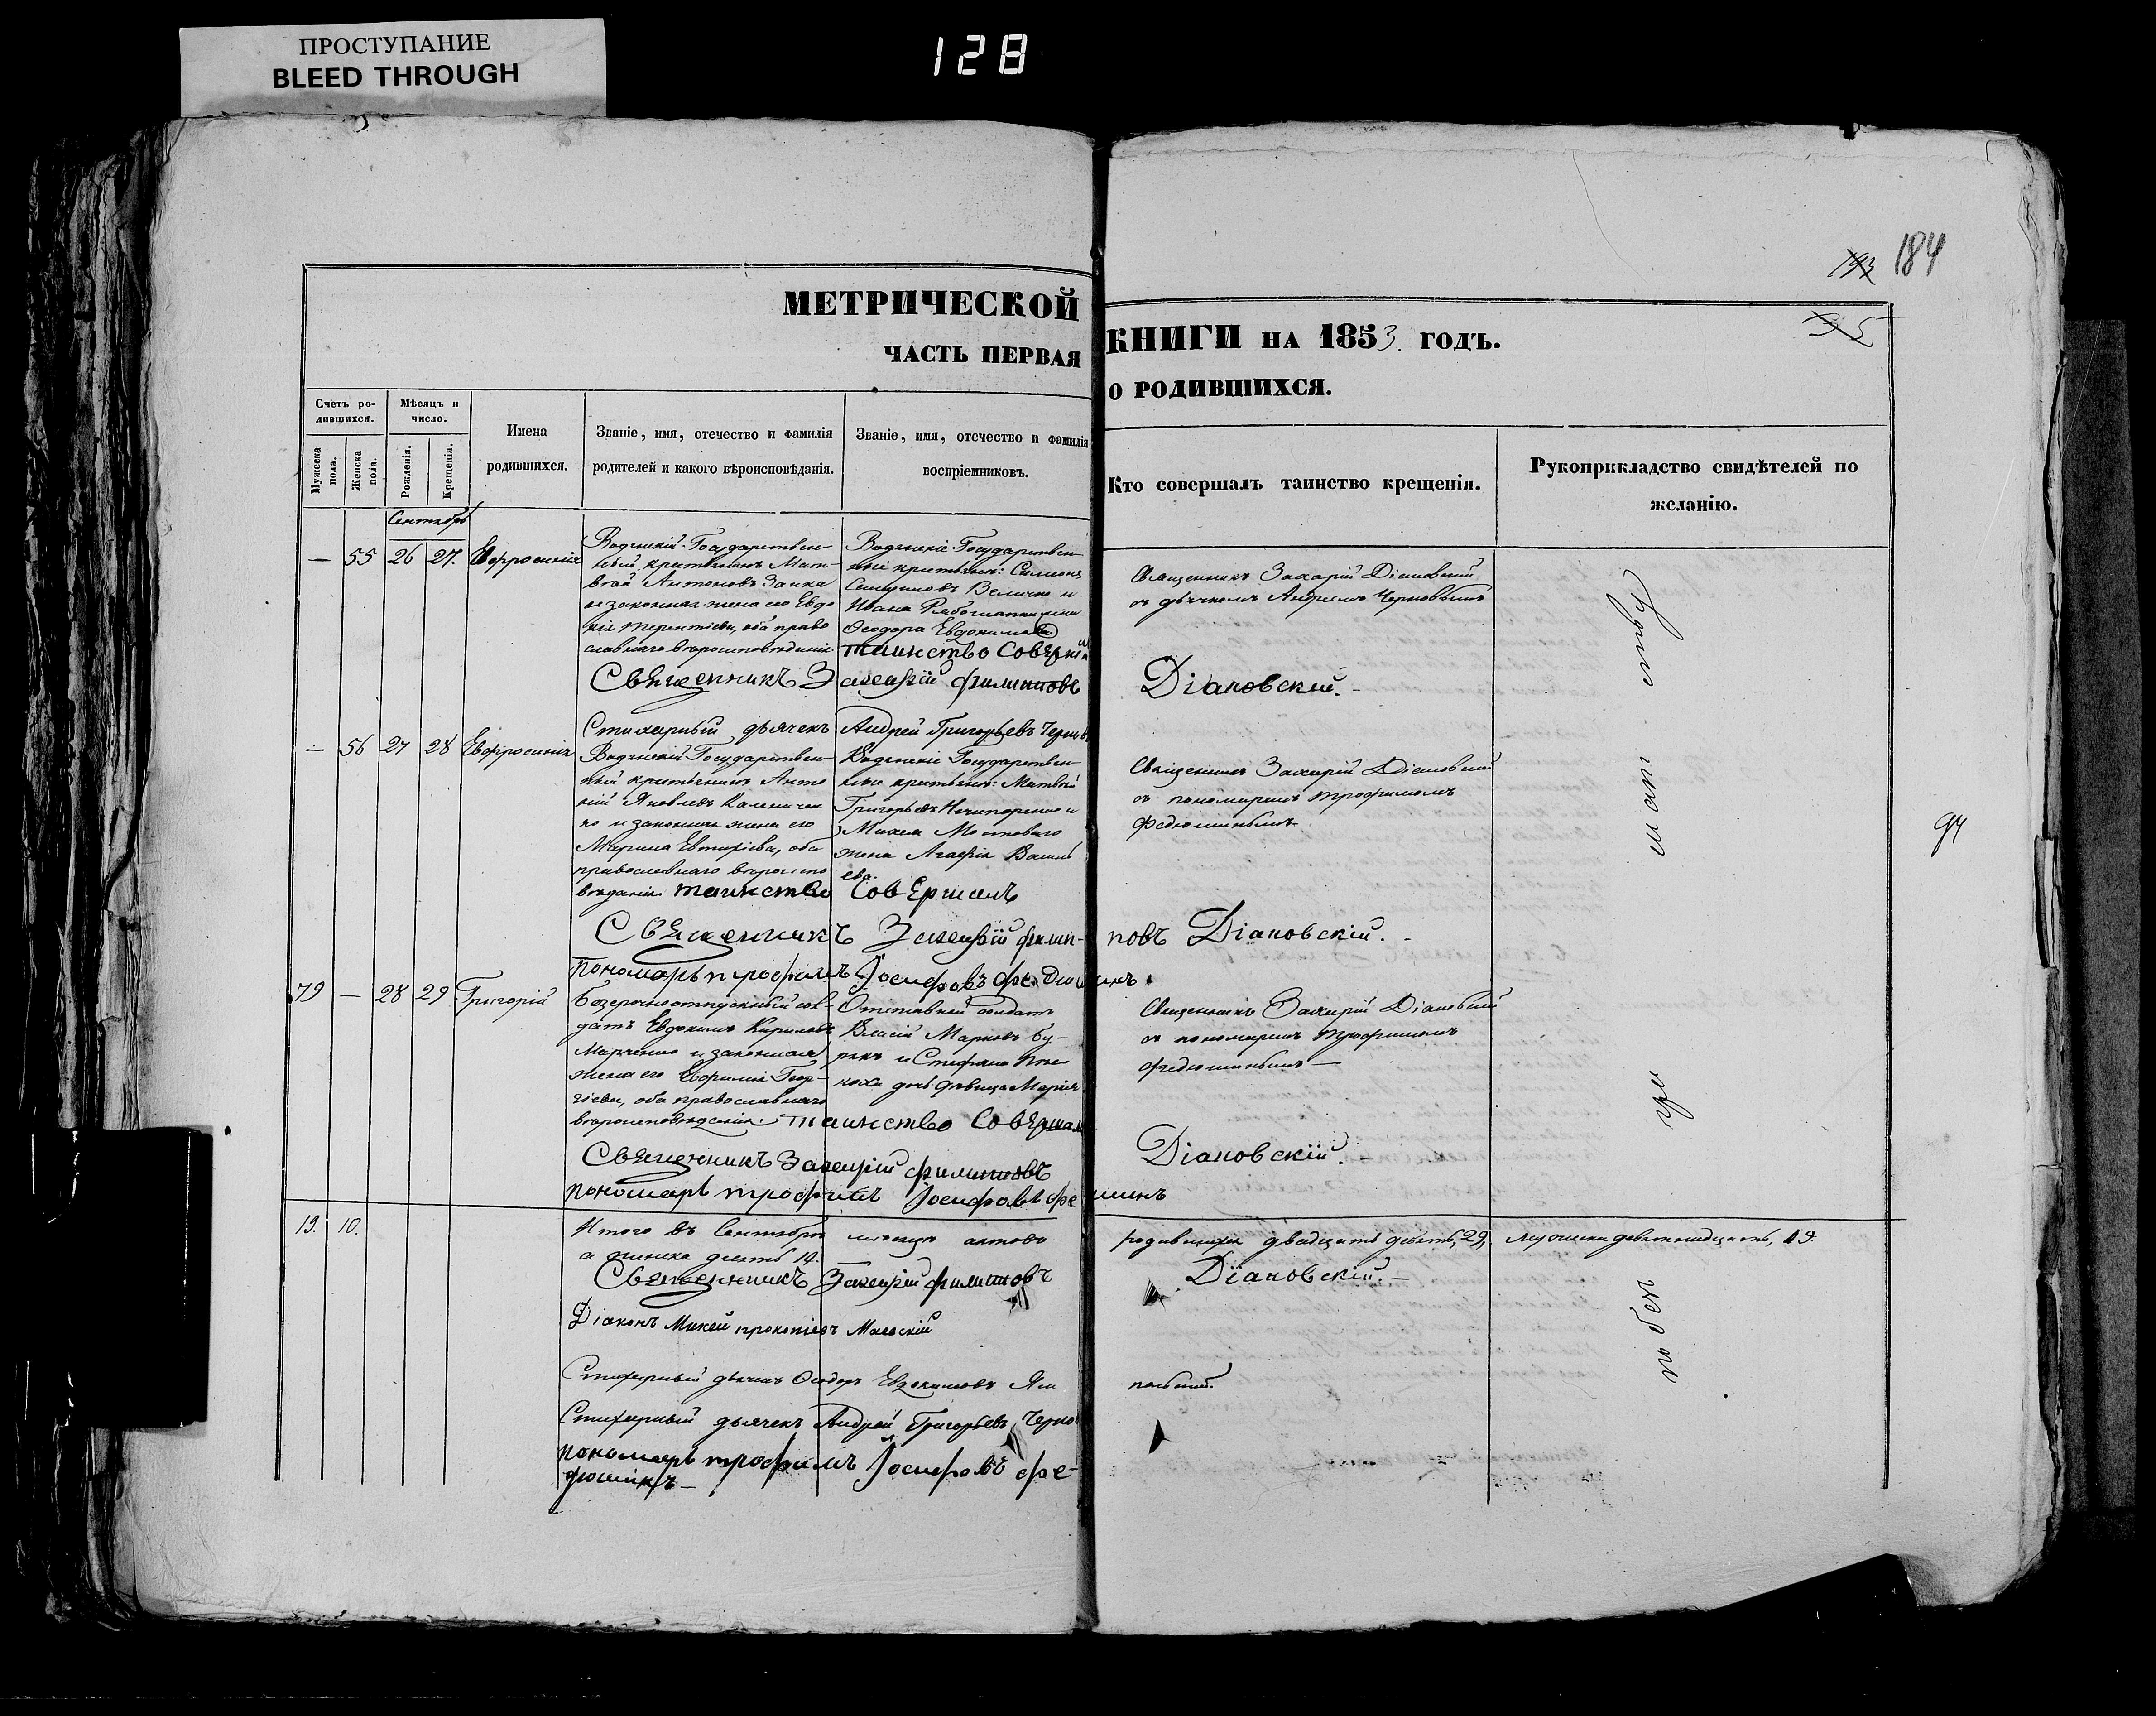 ПРОСТУПАНИЕ
BLEED THROUGH
128
193 184
МЕТРИЧЕСКОЙ КНИГИ НА 1853. ГОДЪ.
95
ЧАСТЬ ПЕРВАЯ О РОДИВШИХСЯ.
Счетъ ро-
дившихся.
Мужеска пола.
Женска пола.
Мѣсяцъ и
число.
Рожденія.
Крещенія.
Имена
родившихся.
Званіе, имя, отечество и фамилія
родителей и какого вѣроисповѣданія.
Званіе, имя, отечество и фамилія
воспріемниковъ.
Кто совершалъ таинство крещенія.
Рукоприкладство свидѣтелей по
желанію.
Сентябрь
— 55 26 27. Евфросинія
Государствен-
ный крестьянинъ Мат-
вей Антоновъ Заика
и законная жена его Евдо
кія Терентіева, оба право
славнаго вѣроисповѣданія.
Государствен-
ные крестьяне: Симеонъ
Величко и
Ивана жена
Ѳеодора Евдокимова
Священникъ Захарій Діановскій
съ дьячкомъ Андреемъ Черновымъ
таинство Совершилъ
Священникъ Захарій Филиповъ Діановскій.
Стихарный дьячекъ Андрей Григорьевъ
— 56 27 28 Евфросинія
Государствен-
ный крестьянинъ Анто
ній Яковлевъ
и законная жена его
Марина Евтихіева, оба
православнаго вѣроиспо
вѣданія
Государствен-
ные крестьяне: Матвей
Григорьевъ Нечипоренко и
Михея Мостоваго
жена Агафія Василь
ева.
Священникъ Захарій Діановскій
съ пономаремъ Трофимомъ
Федюшинымъ.
таинство Совершилъ
Священникъ Захарій Филип- повъ Діановскій.
пономарь трофимъ Іосифовъ Федюшинъ
79 — 28 29 Григорій
Безсрочноотпускный сол-
датъ Евдокимъ Кириловъ
Марченко и законная
жена его Евфимія Геор-
гіева, оба православнаго
вѣроисповѣданія.
Отставной солдатъ
Власій Марковъ Бу-
ракъ и Стефана
дочь дѣвица Марія
Священникъ Захарій Діановскій
съ пономаремъ Трофимомъ
Федюшинымъ —
таинство Совершилъ
Священникъ Захарій Филиповъ Діановскій.
пономарь трофимъ Іосифовъ Федюшинъ
19. 10.
Итого въ Сентябрѣ мѣсяцѣ актовъ родившихся двадцать девять, 29, мужеска девятнадцать, 19.
а женска десять 10.
Священникъ Захарій Филиповъ Діановскій. —
Діаконъ Михей прокопіевъ Маевскій
Стихарный дьячекъ Ѳеодоръ Евдокимовъ
Стихарный дьячекъ Андрей Григорьевъ
пономарь трофимъ Іосифовъ Фе-
дюшинъ —
94